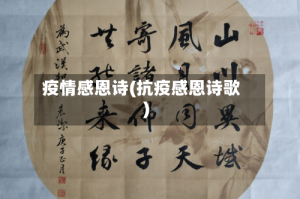 疫情感恩诗(抗疫感恩诗歌
)
山川異域
風月同天
寄諸子
共結来緣
為武漢
庚子正月